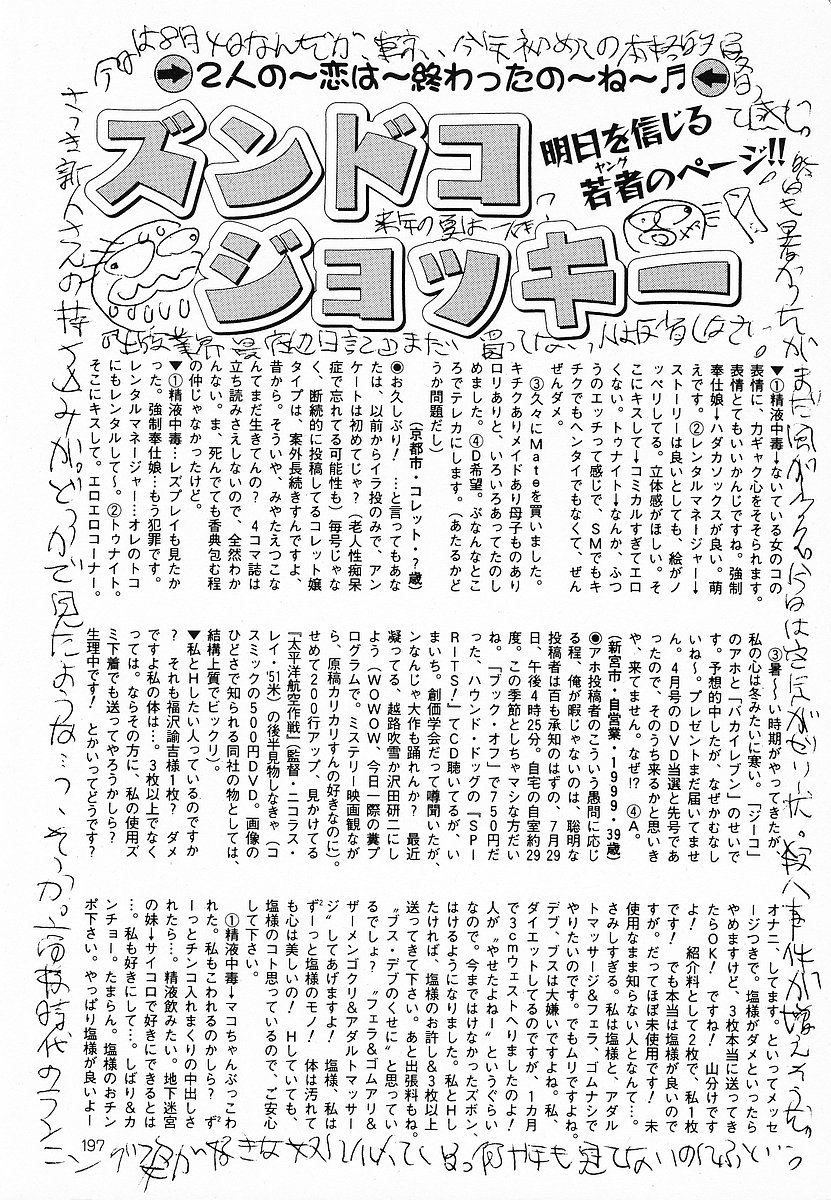 2人の〜恋は〜終わったの〜ね〜♬
ズンドコ
ジョッキー
明日を信じる
若者のページ!!
ヤング
来年の夏は
▼①精液中毒→ないている女のコの
表情に、カギャク心をそそられます。
表情とてもいいかんじですね。強制
奉仕娘→ハダカソックスが良い。萌
えです。②レンタルマネージャー→
ストーリーは良いとしても、絵がノ
ッペリしてる。立体感がほしい。そ
こにキスして→コミカルすぎてエロ
くない。トゥナイト→なんか、ふつ
うのエッチって感じで、SMでもキ
チクでもヘンタイでもなくて、ぜん
ぜんダメ。
③久々にMateを買いました。
キチクありメイドあり母子ものあり
ロリありと、いろいろあってたのし
めました。④D希望。ぶなんなとこ
ろでテレカにします。(あたるかど
うか問題だし)。
(京都市・コレット・?歳)
◉お久しぶり! …と言ってもあな
たは、以前からイラ投のみで、アン
ケートは初めてじゃ?(老人性痴呆
症で忘れてる可能性も)毎号じゃな
く、断続的に投稿してるコレット嬢
タイプは、案外長続きすんですよ、
昔から。そういや、みやたえつこな
んてまだ生きてんの? 4コマ誌は
立ち読みさえしないので、全然わか
んない。ま、死んでても香典包む程
の仲じゃなかったけど。
▼①精液中毒…レズプレイも見たか
った。強制奉仕娘…もう犯罪です。
レンタルマネージャー…オレのトコ
にもレンタルして〜。②トゥナイト。
そこにキスして。エロエロコーナー。
③暑〜い時期がやってきたが、
私の心は冬みたいに寒い。「ジーコ」
のアホと「バカイレブン」のせいで
す。予想的中したが、なぜかむなし
いね〜。プレゼントまだ届いてませ
ん。4月号のDVD当選と先号であ
ったので、そのうち来るかと思いき
や、来てません。なぜ!? ④A。
(新宮市・自営業・1999・39歳)
◉アホ投稿者のこういう愚問に応じ
る程、俺が暇じゃないのは、聡明な
投稿者は百も承知のはずの、7月29
日、午後4時25分。自宅の自室約29
度。この季節としちゃマシな方だい
ね。「ブック・オフ」で750円だ
った、ハウンド・ドッグの『SPI
RITS!』てCD聴いてるが、い
まいち。創価学会だって噂聞いたが、
ンなんじゃ大作も踊れんか? 最近
凝ってる、越路吹雪か沢田研二にし
よう(WOWOW、今日一際の糞プ
ログラムで。ミステリー映画観なが
ら、原稿カリカリすんの好きなのに)。
せめて200行アップ、見かけてる
『太平洋航空作戦』(監督・ニコラス・
レイ・'51米)の後半見物しなきゃ(コ
スミックの500円DVD。画像の
ひどさで知られる同社の物としては、
結構上質でビックリ)。
▼私とHしたい人っているのですか
? それも福沢諭吉様1枚? ダメ
ですよ私の体は…。3枚以上でなく
っては。ならその方に、私の使用ズ
ミ下着でも送ってやろうかしら?
生理中です! とかいってどうです?
オナニ、してます。といってメッセ
ージつきで。塩様がダメといったら
やめますけど、3枚本当に送ってき
たらOK! ですね! 山分けです
よ! 紹介料として2枚で、私1枚
です! でも本当は塩様が良いので
すが。だってほぼ未使用です! 未
使用なまま知らない人となんて…。
さみしすぎる。私は塩様と、アダル
トマッサージ&フェラ、ゴムナシで
やりたいのです。でもムリですよね。
デブ、ブスは大嫌いですよね。私、
ダイエットしてるのですが、1カ月
で3cmウェストへりましたのよ!
人が〝やせたよねー〟というぐらい
なので。今まではけなかったズボン、
はけるようになりました。私とHし
たければ、塩様のお許し&3枚以上
送ってきて下さい。あと出張料もね。
〝ブス・デブのくせに〟と思ってい
るでしょ? 〝フェラ&ゴムアリ&
ザーメンゴクリ&アダルトマッサー
ジ〟してあげますよ! 塩様、私は
ずーっと塩様のモノ! 体は汚れて
も心は美しいの! Hしていても、
塩様のコト思っているので、ご安心
して下さい。
①精液中毒→マコちゃんぶっこわ
れた。私もこわれるのかしら? ず
ーっとチンコ入れまくりの中出しさ
れたら…。精液飲みたい。地下迷宮
の妹→サイコロで好きにできるとは
…。私も好きにして…。しばり&カ
ンチョー。たまらん。塩様のおチン
ポ下さい。やっぱり塩様が良いよー
さっき新人さんの持ち込みが。どっかで見たような…
197